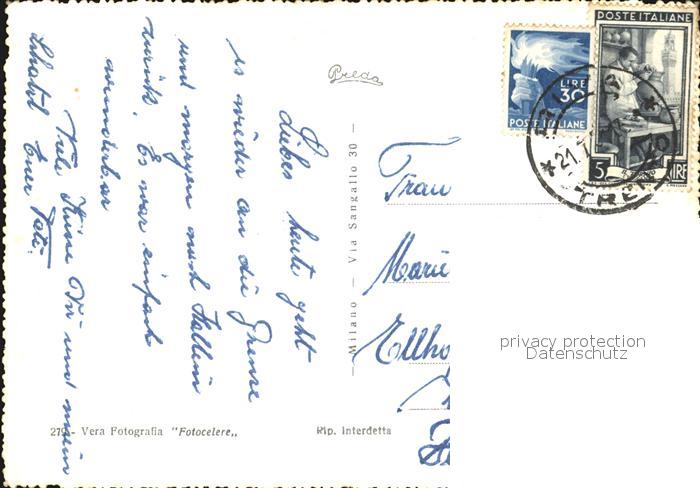 Liebes heute geht
es wieder an die Grenze
und morgen nach Hallein
zurück. Es war einfach
wunderbar
Viele Küsse Dir und mein
Euer Tati.
Breda
— Milano — Via Sangallo 30 —
279 - Vera Fotografia "Fotocelere„
Rip. Interdetta
LIRE
30
POSTE ITALIANE
POSTE ITALIANE
5 LIRE
21
Frau
Marie
Ellho
privacy protection
Datenschutz